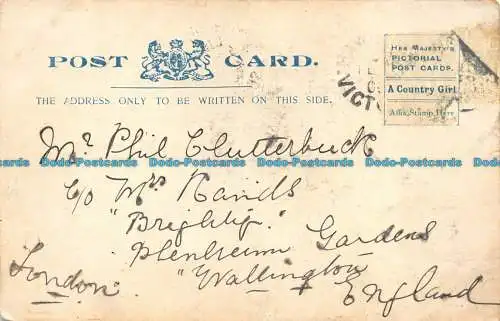 POST CARD.
THE ADDRESS ONLY TO BE WRITTEN ON THIS SIDE.
HER MAJESTY'S
PICTORIAL
POST CARDS.
A Country Girl
Affix Stamp Here
VICT
Mr. Phil Clutterbuck
c/o Mrs
"Brightly"
Gardens
"Wallington
London.
England
Dodo-Postcards Dodo-Postcards Dodo-Postcards Dodo-Postcards Dodo-Postcards